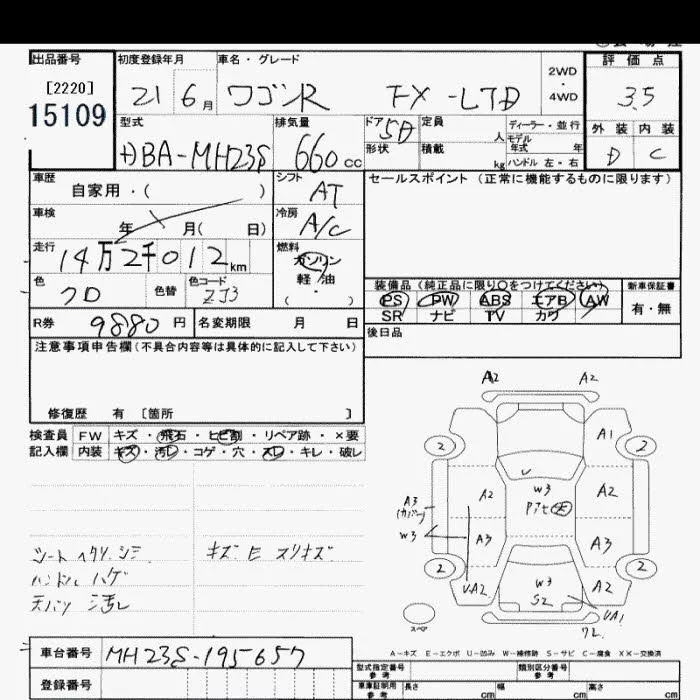 出品番号 初度登録年月 車名・グレード 2WD ・ 4WD 評価点
[2220]
15109
21 6月 ワゴンR FX-LTD
3.5
型式 排気量 ドア 5D 定員 人 ディーラー・並行
形状 積載 kg モデル年式 年
ハンドル 左・右
外装 内装
DBA-MH23S 660cc
D C
車歴 自家用・( )
シフト AT
セールスポイント (正常に機能するものに限ります)
車検 年 月( 日)
冷房 A/C
走行 14万2千012km
燃料 ガソリン
軽・油
( ・ )
色 色替 色コード ZJ3
装備品 (純正品に限り○をつけてください) 新車保証書
PS PW ABS エアB AW
SR ナビ TV カワ
有・無
R券 9880円 名変期限 月 日
後日品
注意事項申告欄(不具合内容等は具体的に記入して下さい)
修復歴 有 [箇所 ]
検査員 FW キズ・飛石・ヒビ割・リペア跡・×要
記入欄 内装 キズ・汚レ・コゲ・穴・スレ・キレ・破レ
A2 A2
A1
2 2
A2 W3 A2
A3 W3
A3 A3
2 2
UA2 W3 A2
S2
UA1
スペア
シート ヘタリ シミ キズ E スリキズ
ハンドル ハゲ
天バリ 汚レ
A-キズ E-エクボ U-凹み W-補修跡 S-サビ C-腐食 XX-交換済
車台番号 MH23S-195657
登録番号
型式指定番号 類別区分番号
車庫証明用参考 長さ cm 幅 cm 高さ cm